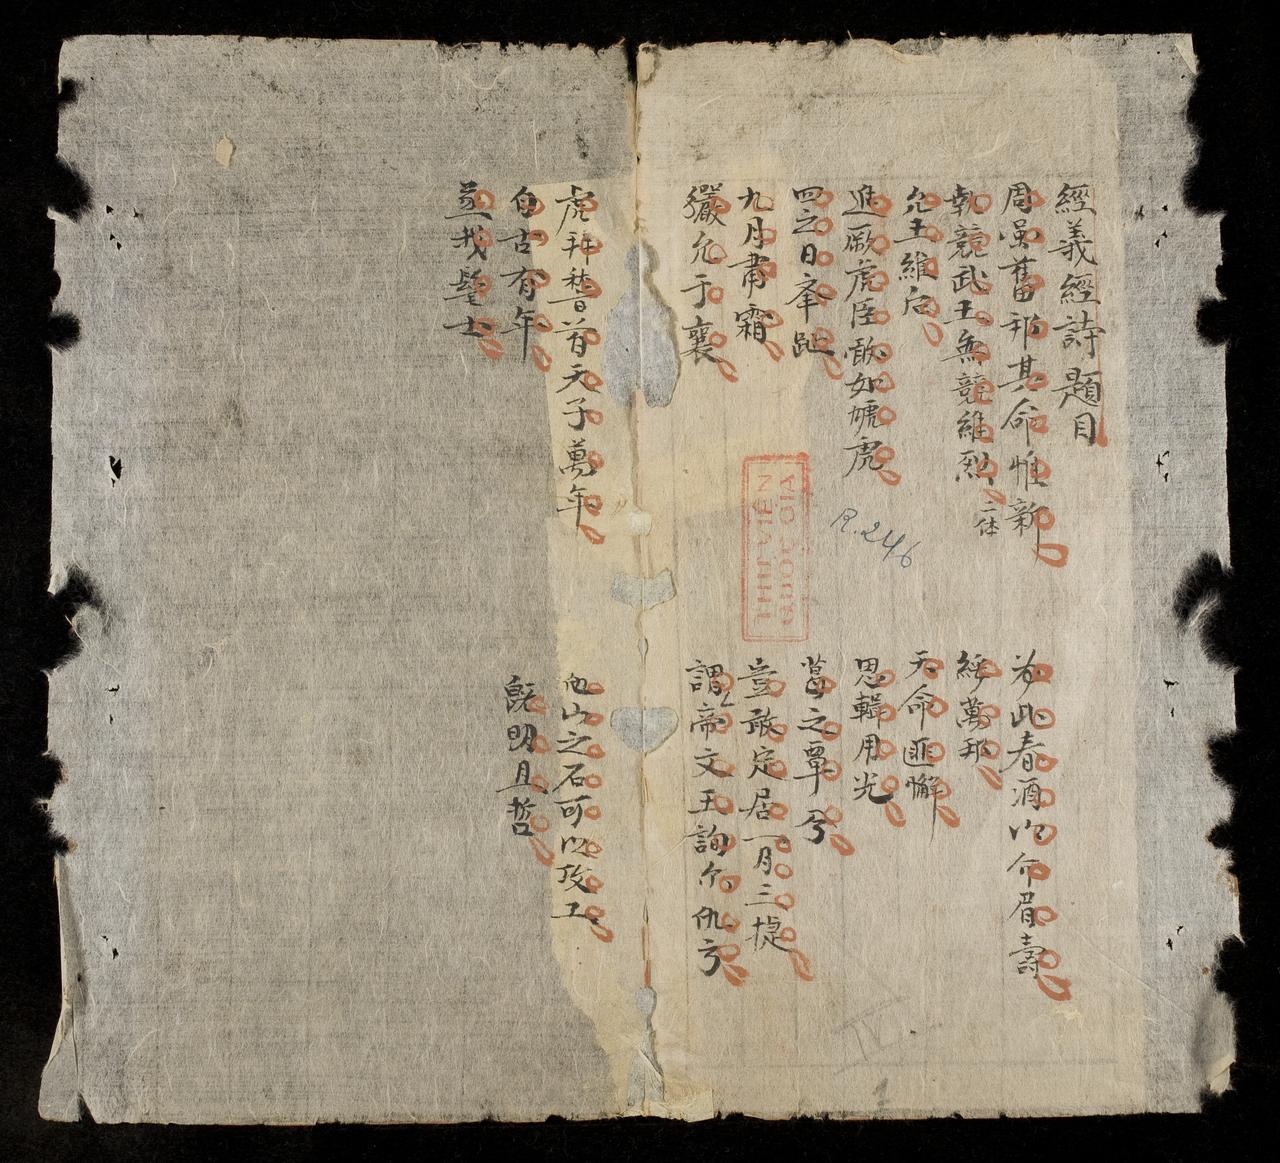 經義經詩題目
周雖舊邦其命惟新
為此春酒以介眉壽
執競武王無競維烈 二体
綏萬邦
允王維后
天命匪懈
進厥虎臣敵如虓虎
思輯用光
四之日舉趾
葛之覃兮
九月肅霜
豈敢定居一月三捷
玁允于襄
謂帝文王詢尔仇方
虎拜稽首天子萬年
他山之石可以攻工
自古有年
既明且哲
烝我髦士
THƯ VIỆN
R.246